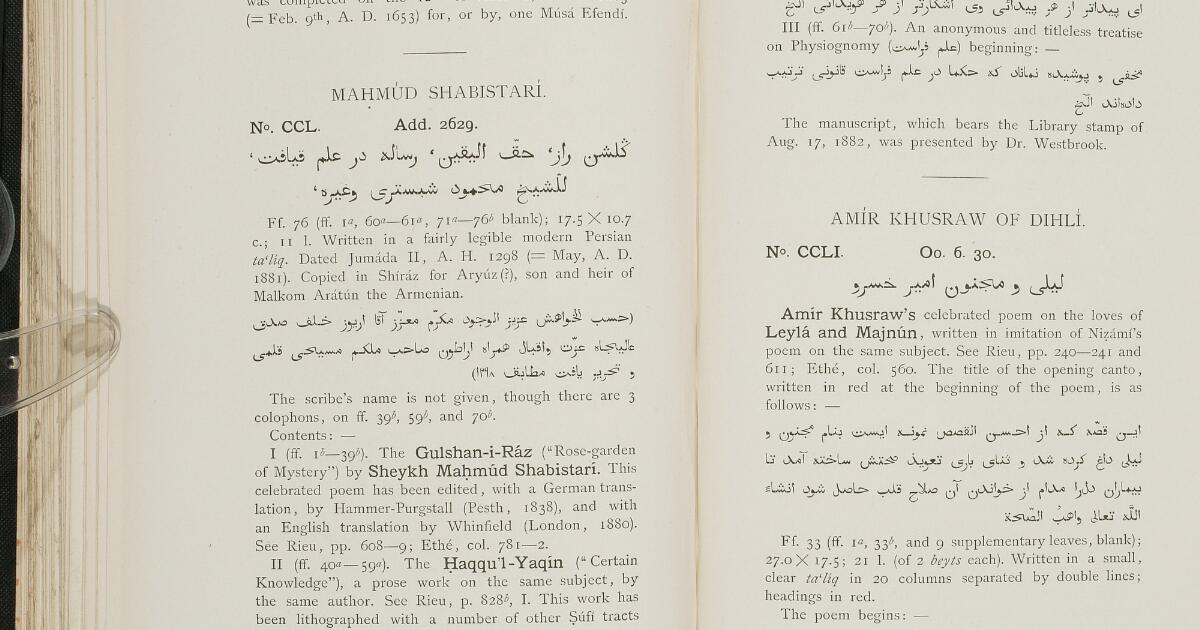 was completed on the
(= Feb. 9th, A. D. 1653) for, or by, one Músá Efendí.
MAḤMÚD SHABISTARÍ.
No. CCL. Add. 2629.
گلشن راز، حقّ اليقين، رساله در علم قيافت،
للشيخ محمود شبسترى وغيره،
Ff. 76 (ff. 1a, 60a—61a, 71a—76b blank); 17.5 × 10.7
c.; 11 l. Written in a fairly legible modern Persian
ta‘liq. Dated Jumáda II, A. H. 1298 (= May, A. D.
1881). Copied in Shíráz for Aryúz (?), son and heir of
Malkom Arátún the Armenian.
(حسب الخواهش عزيز الوجود مكرّم معزّز آقا اريوز خلف صدق
عاليجاه عزّت واقبال همراه اراطون صاحب ملكم مسيحى قلمى
و تحرير يافت مطابق ۱۲۹۸)
The scribe's name is not given, though there are 3
colophons, on ff. 39b, 59b, and 70b.
Contents: —
I (ff. 1b—39b). The Gulshan-i-Ráz (“Rose-garden
of Mystery”) by Sheykh Maḥmúd Shabistarí. This
celebrated poem has been edited, with a German trans-
lation, by Hammer-Purgstall (Pesth, 1838), and with
an English translation by Whinfield (London, 1880).
See Rieu, pp. 608—9; Ethé, col. 781—2.
II (ff. 40a—59a). The Ḥaqqu'l-Yaqín (“Certain
Knowledge”), a prose work on the same subject, by
the same author. See Rieu, p. 828b, I. This work has
been lithographed with a number of other Ṣúfí tracts
اى پيداتر از هر پيدائى وى آشكارتر از هر هويدائى الخ
III (ff. 61b—70b). An anonymous and titleless treatise
on Physiognomy (علم فراست) beginning: —
مخفى و پوشيده نماناد كه حكما در علم فراست قانونى ترتيب
داده‌اند الّخ
The manuscript, which bears the Library stamp of
Aug. 17, 1882, was presented by Dr. Westbrook.
AMÍR KHUSRAW OF DIHLÍ.
No. CCLI. Oo. 6. 30.
ليلى و مجنون امير خسرو
Amír Khusraw's celebrated poem on the loves of
Leylá and Majnún, written in imitation of Niẓámí's
poem on the same subject. See Rieu, pp. 240—241 and
611; Ethé, col. 560. The title of the opening canto,
written in red at the beginning of the poem, is as
follows: —
اين قصّه كه از احسن القصص نمونه ايست بنام مجنون و
ليلى داغ كرده شد و ثناى بارى تعويذ صحتش ساخته آمد تا
بيماران دلرا مدام از خواندن آن صلاح قلب حاصل شود انشاء
اللّه تعالى واهبُ الصّحة
Ff. 33 (ff. 1a, 33b, and 9 supplementary leaves, blank);
27.0 × 17.5; 21 l. (of 2 beyts each). Written in a small,
clear ta‘liq in 20 columns separated by double lines;
headings in red.
The poem begins: —